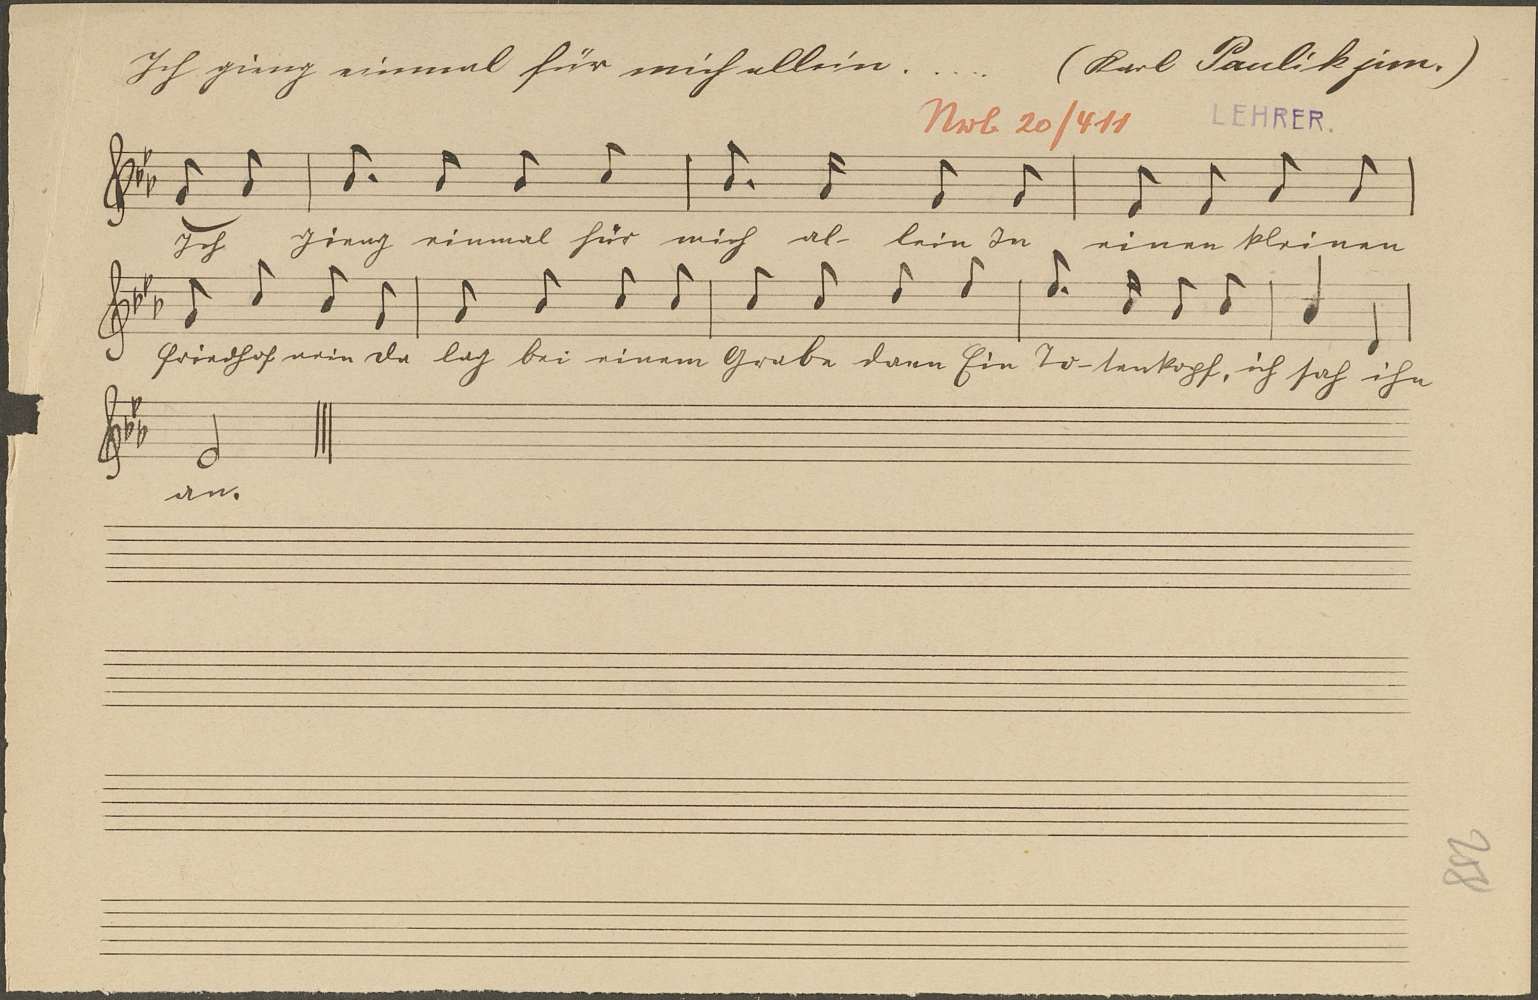 Ich gieng einmal für mich allein. .... (Karl Paulik jun.)
Nrb 20/411 LEHRER.
Ich gieng einmal für mich al- lein In einen kleinen
Friedhof nein Da lag bei einem Grabe dann Ein To-tenkopf, ich sah ihn
an.